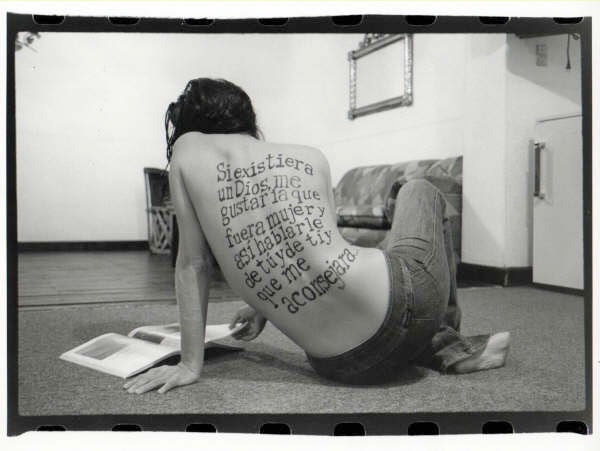 Si existiera
un Dios, me
gustaría que
fuera mujer y
así hablarle
de tú y de ti y
que me
aconsejara.